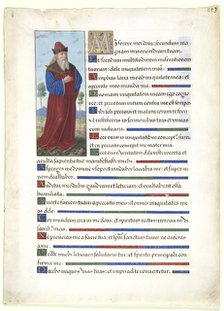 Miserere mei deus secundum mag
nam misericordiam tuam
Et secundum multitudinem miserationum
tuarum dele iniquitatem meam
Amplius lava me ab iniquitate mea et
a peccato meo munda me
iniquitatem meam ego cognosco
et peccatum meum contra me est semper
Tibi soli peccavi et malum coram te
feci ut iustificeris in sermonibus
cum iudicaris
Ecce enim in iniquitatibus conceptus
sum et in peccatis concepit me mater
mea
Ecce enim veritatem dilexisti incerta et
occulta sapientie tue manifestasti michi
Asperges me domine ysopo et mundabor lavabis me et super ni
vem dealbabor
Auditui meo dabis gaudium et leticiam et exultabunt ossa
humiliata
Averte faciem tuam a peccatis meis et omnes iniquitates me
as dele
Cor mundum crea in me deus et spiritum rectum innova in vis
ceribus meis
Ne proicias me a facie tua et spiritum sanctum tuum ne auferas
a me
Redde michi leticiam salutaris tui et spiritu principali con
firma me
Docebo iniquos vias tuas et impii ad te convertentur